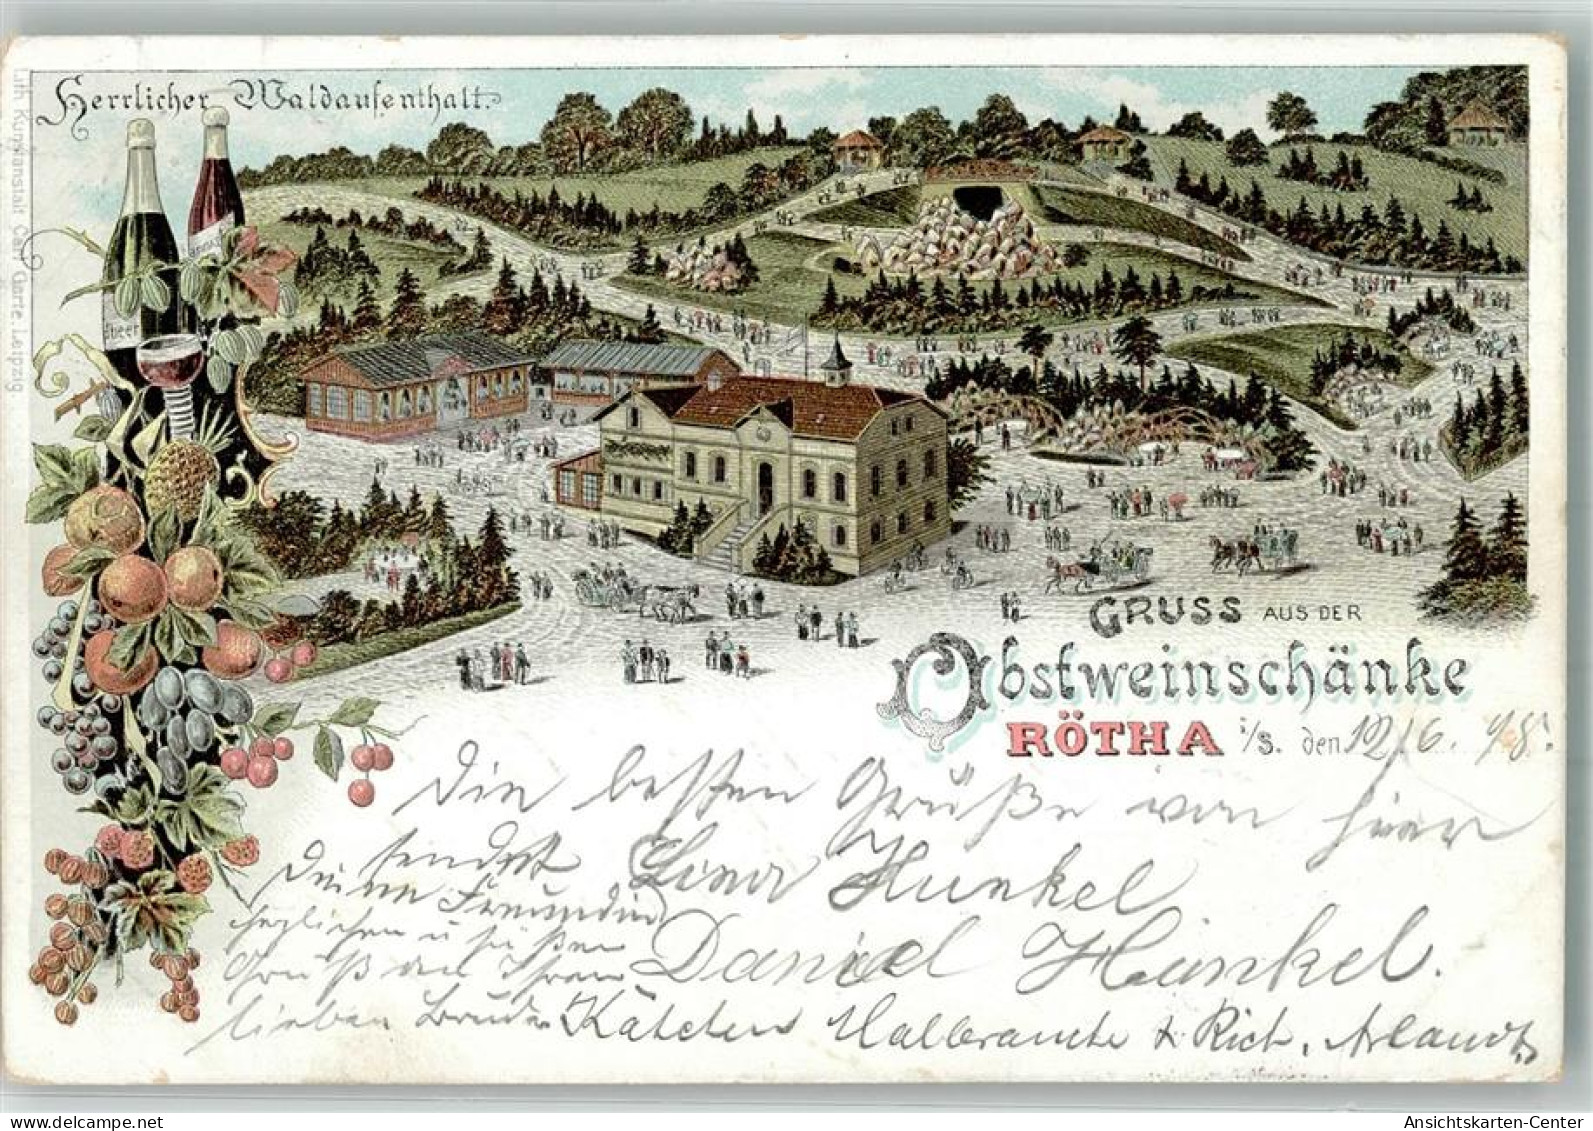 Herrlicher Waldaufenthalt.
Lith. Kunstanstalt Carl Garte, Leipzig
GRUSS AUS DER
Obstweinschänke
RÖTHA i/S. den 12/6. 98.
Die besten Grüße von hier
sendet Lina Hunkel
Deine Freundin
herzlichen u süßen Daniel Hünkel.
Gruß an Ihren
lieben Bruder Kätchen Halbrauche & Rich. Arlandt
Ansichtskarten-Center